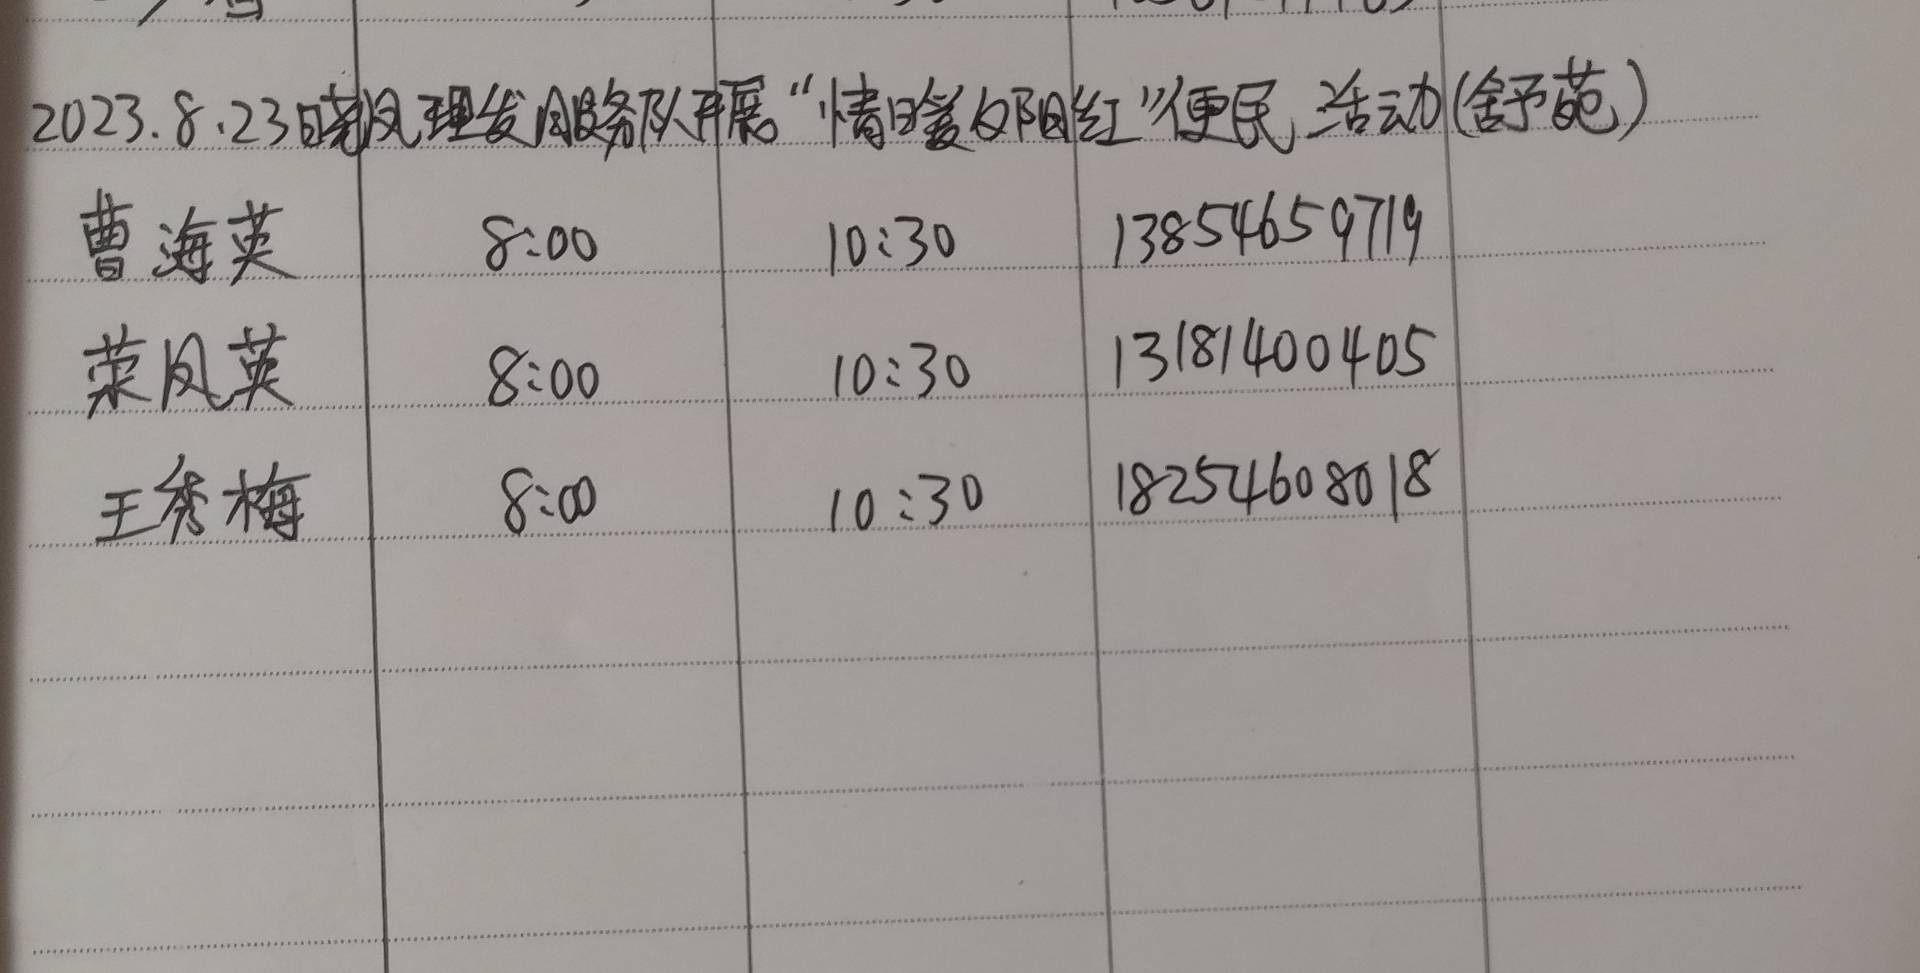 2023.8.23晓风理发服务队开展“情暖夕阳红”便民活动(舒苑)
曹海英 8:00 10:30 13854659719
荣凤英 8:00 10:30 13181400405
王秀梅 8:00 10:30 18254608018